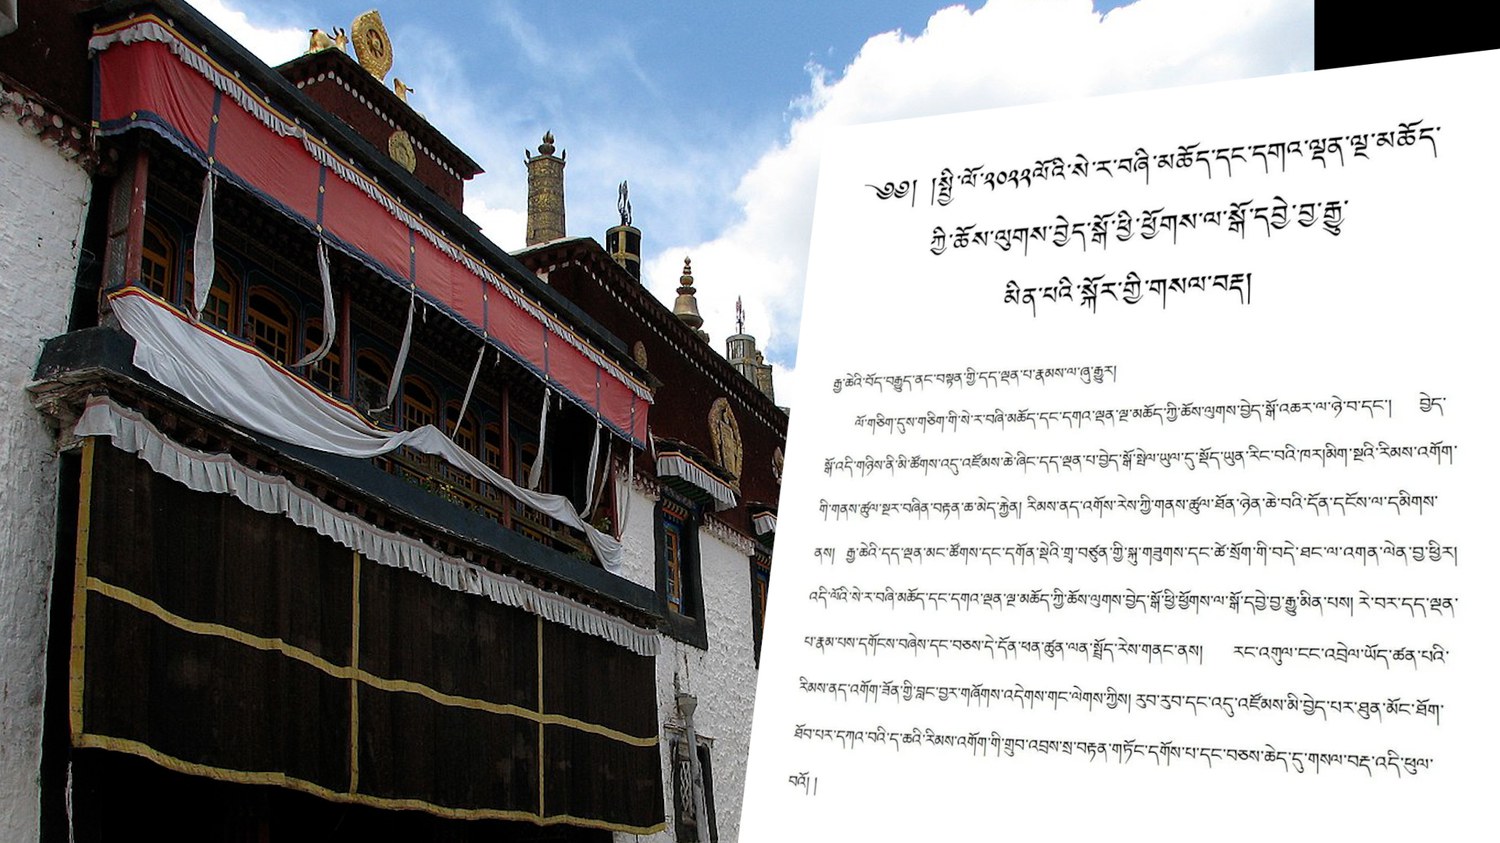 ༄༅།  །སྤྱི་ལོ་༢༠༢༢ལོའི་སེ་ར་བཞི་མཆོད་དང་དགའ་ལྡན་ལྔ་མཆོད་
ཀྱི་ཆོས་ལུགས་བྱེད་སྒོ་ཕྱི་ཕྱོགས་ལ་སྒོ་དབྱེ་བྱ་རྒྱུ་
མིན་པའི་སྐོར་གྱི་གསལ་བརྡ།
རྒྱ་ཆེའི་བོད་བརྒྱུད་ནང་བསྟན་གྱི་དད་ལྡན་པ་རྣམས་ལ་ཞུ་རྒྱུར།
ལོ་གཅིག་དུས་གཅིག་གི་སེ་ར་བཞི་མཆོད་དང་དགའ་ལྡན་ལྔ་མཆོད་ཀྱི་ཆོས་ལུགས་བྱེད་སྒོ་འཆར་ལ་ཉེ་བ་དང་།  བྱེད་
སྒོ་འདི་གཉིས་ནི་མི་ཚོགས་འདུ་འཛོམས་ཆེ་ཞིང་དད་ལྡན་པ་བྱེད་སྒོ་སྤེལ་ཡུལ་དུ་སྡོད་ཡུན་རིང་བའི་ཁར།མིག་སྔའི་རིམས་འགོག་
གི་གནས་ཚུལ་སྔར་བཞིན་བརྟན་ཆ་མེད་རྐྱེན། རིམས་ནད་འགོས་རེས་ཀྱི་གནས་ཚུལ་ཐོན་ཉེན་ཆེ་བའི་དོན་དངོས་ལ་དམིགས་
ནས།  རྒྱ་ཆེའི་དད་ལྡན་མང་ཚོགས་དང་དགོན་སྡེའི་གྲྭ་བཙུན་གྱི་སྐུ་གཟུགས་དང་ཚེ་སྲོག་གི་བདེ་ཐང་ལ་འགན་ལེན་བྱ་ཕྱིར།
འདི་ལོའི་སེ་ར་བཞི་མཆོད་དང་དགའ་ལྡན་ལྔ་མཆོད་ཀྱི་ཆོས་ལུགས་བྱེད་སྒོ་ཕྱི་ཕྱོགས་ལ་སྒོ་དབྱེ་བྱ་རྒྱུ་མིན་པས། རེ་བར་དད་ལྡན་
པ་རྣམ་པས་དགོངས་བཞེས་དང་བཅས་དེ་དོན་ཕན་ཚུན་ལན་སྤྲོད་རེས་གནང་ནས།  རང་འགུལ་ངང་འབྲེལ་ཡོད་ཚན་པའི་
རིམས་ནད་འགོག་ཟོན་གྱི་བླང་བྱར་གཞོགས་འདེགས་གང་ལེགས་ཀྱིས། རུབ་རུབ་དང་འདུ་འཛོམས་མི་བྱེད་པར་ཐུན་མོང་ཐོག་
ཐོབ་པར་དཀའ་བའི་ད་ཆའི་རིམས་འགོག་གི་གྲུབ་འབྲས་སྲ་བརྟན་གཏོང་དགོས་པ་དང་བཅས་ཆེད་དུ་གསལ་བརྡ་འདི་ཕུལ་
བའོ། །